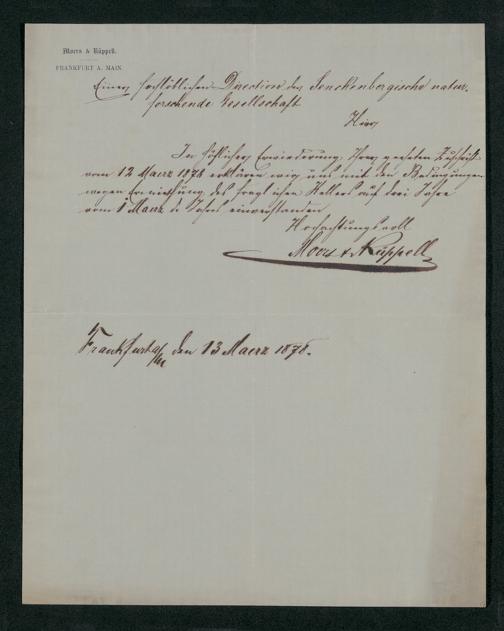 Moers & Rüppell.
FRANKFURT A. MAIN.
Einer hochlöblichen Direction der Senckenbergische natur-
forschende Gesellschaft
Hier
In höflicher Erwiederung Ihrer geehrten Zuschrift
vom 12 Maerz 1878 erklären wir uns mit den Bedingungen
wegen Ermiethung des fraglichen Kellers auf drei Jahre
vom 1 Maerz d. Jahres einverstanden
Hochachtungsvoll
Moers & Rüppell
Frankfurt a/M den 13 Maerz 1878.